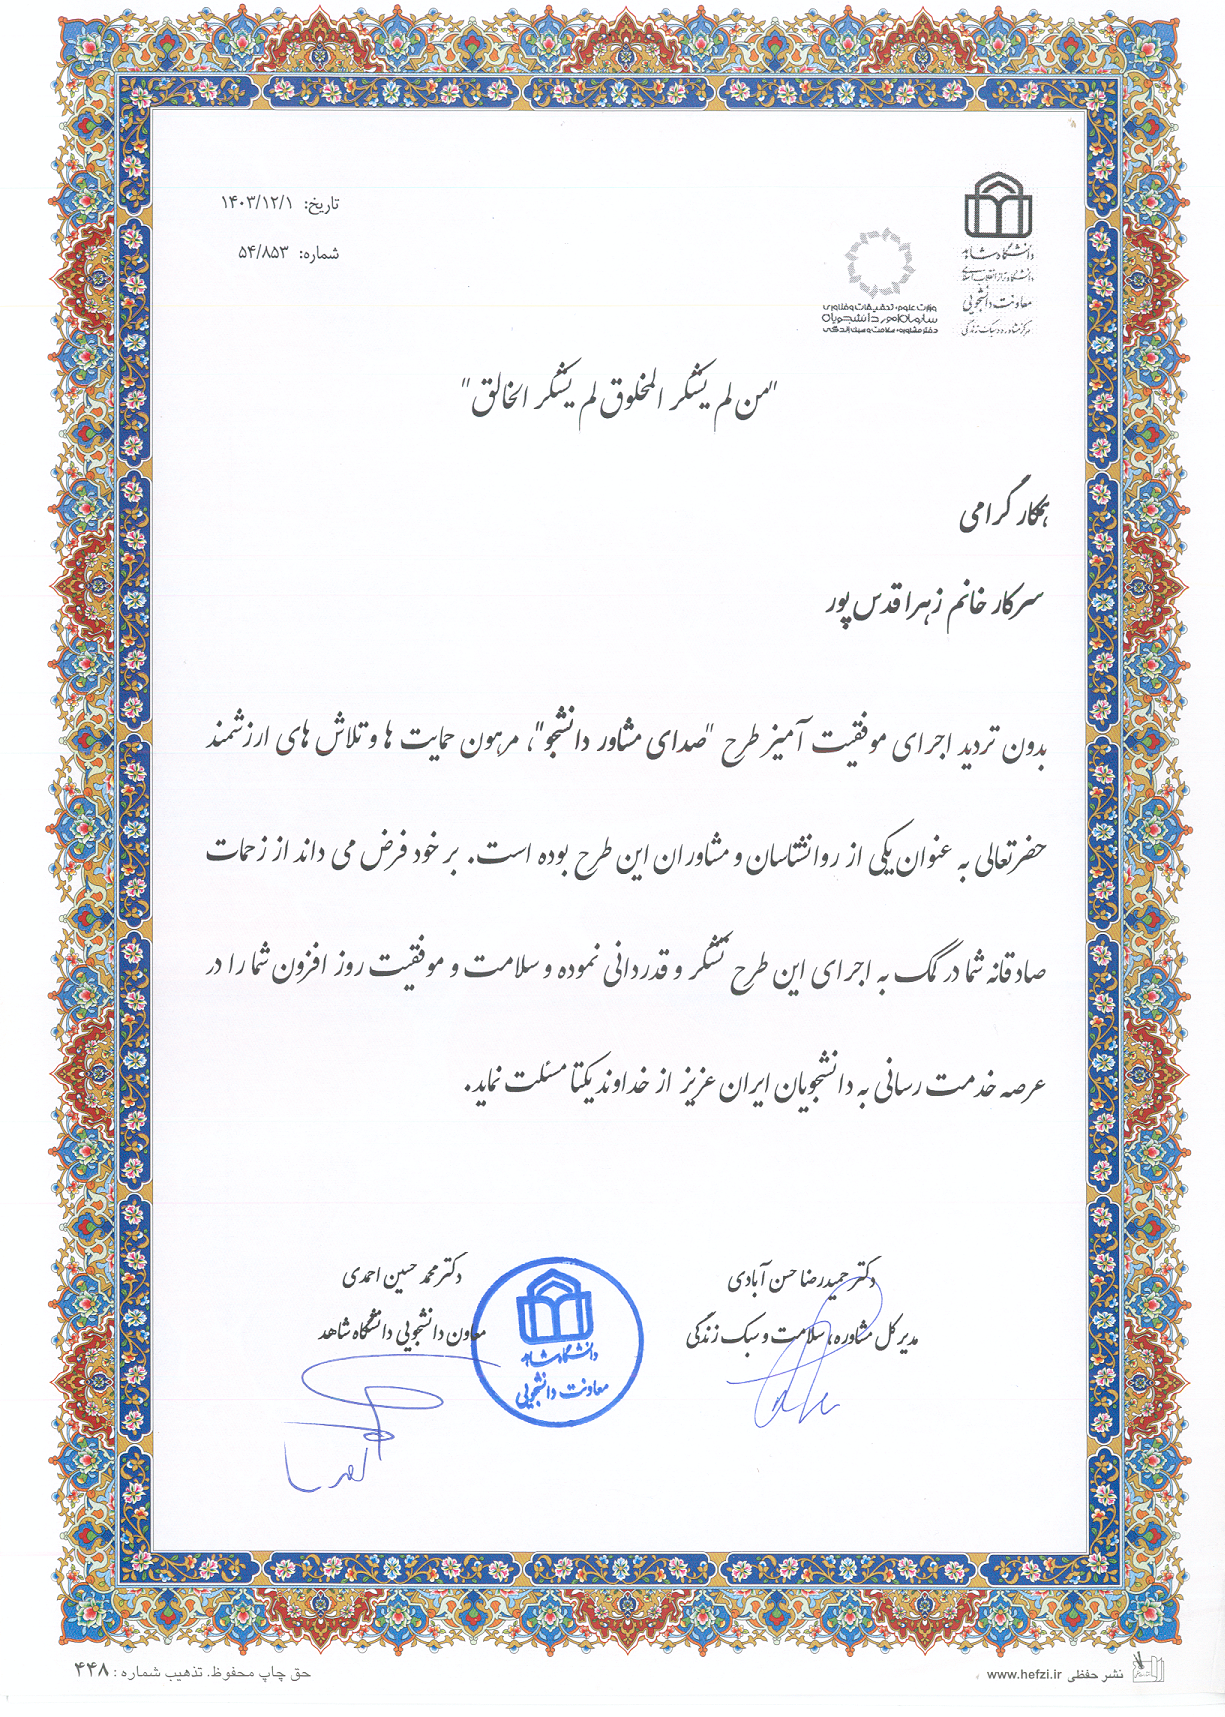 تاریخ: ۱۴۰۳/۱۲/۱
شماره: ۵۴/۸۵۳
دانشگاه شاهد
دانشگاه تراز انقلاب اسلامی
معاونت دانشجویی
مرکز مشاوره و سبک زندگی
وزارت علوم، تحقیقات و فناوری
سازمان امور دانشجویان
دفتر مشاوره، سلامت و سبک زندگی
"من لم یشکر المخلوق لم یشکر الخالق"
همکار گرامی
سرکار خانم زهرا قدس پور
بدون تردید اجرای موفقیت آمیز طرح "صدای مشاور دانشجو"، مرهون حمایت ها و تلاش های ارزشمند
حضرتعالی به عنوان یکی از روانشناسان و مشاوران این طرح بوده است. بر خود فرض می داند از زحمات
صادقانه شما در کمک به اجرای این طرح تشکر و قدردانی نموده و سلامت و موفقیت روز افزون شما را در
عرصه خدمت رسانی به دانشجویان ایران عزیز از خداوند یکتا مسئلت نماید.
دکتر حمیدرضا حسن آبادی
مدیر کل مشاوره، سلامت و سبک زندگی
دکتر محمد حسین احمدی
معاون دانشجویی دانشگاه شاهد
دانشگاه شاهد
معاونت دانشجویی
نشر حفظی www.hefzi.ir
حق چاپ محفوظ. تذهیب شماره : ۴۴۸